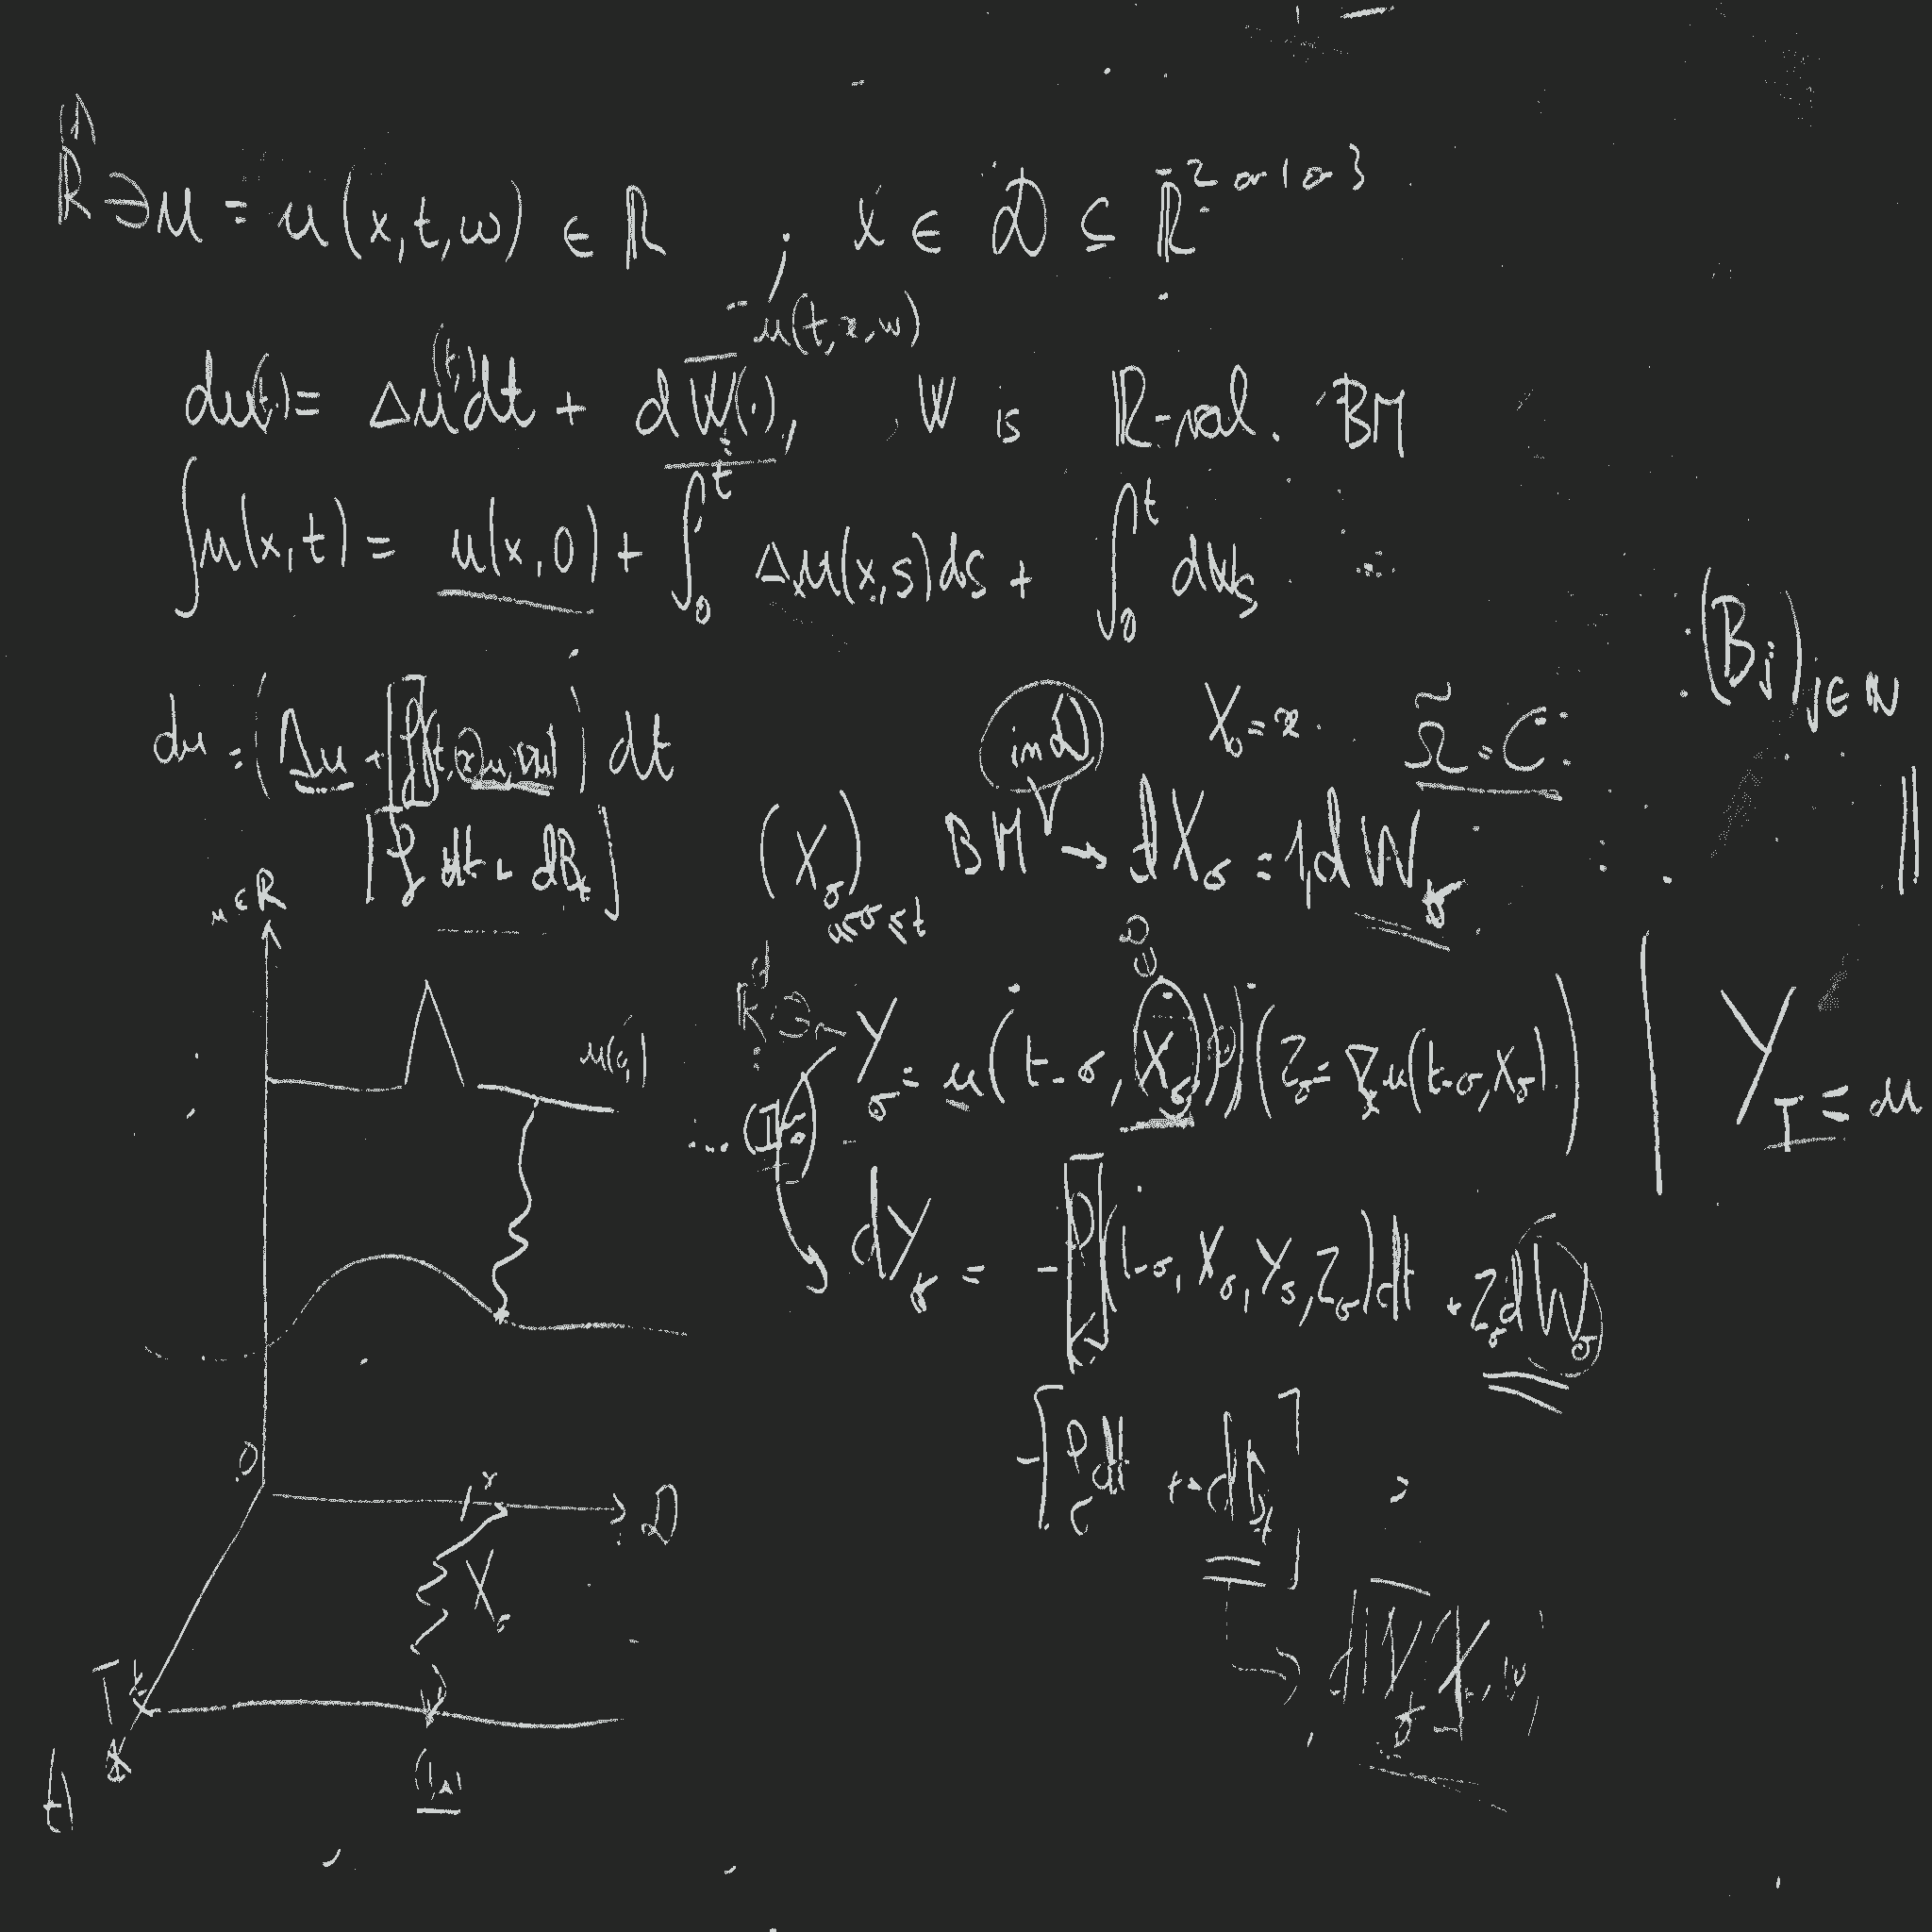 ℝ ∋ u = u(x,t,w) ∈ ℝ ; x ∈ D ⊆ ℝ^2 or 1 or 3
u(t,x,w)
du(t,·) = Δu(t,·)dt + dW(·), , W is ℝ-val. BM
∫u(x,t) = u(x,0) + ∫₀ᵗ Δₓu(x,s)ds + ∫₀ᵗ dWs
(B_j)_{j∈ℕ}
du = (Δu + f(t,x,u,∇u)) dt
in D
X₀ = x
Ω̃ = C
[f dt + dB_t]
(X_σ) 0≤σ≤t
BM → dX_σ = 1,dW_σ
u ∈ ℝ
ℝ^d ∋
Y_σ = u(t-σ, X_σ) (Z_σ = ∇ₓu(t-σ, X_σ)) | Y_T = u
u(0,·)
dY_σ = -f(t-σ, X_σ, Y_σ, Z_σ)dt + Z_σ dW_σ
-[f dt + dB_t]
0
x
D
X_σ
T
t